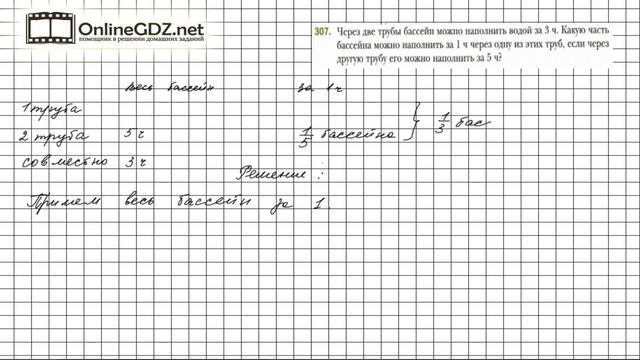 OnlineGDZ.net
помощник в решении домашних заданий
307. Через две трубы бассейн можно наполнить водой за 3 ч. Какую часть
бассейна можно наполнить за 1 ч через одну из этих труб, если через
другую трубу его можно наполнить за 5 ч?
весь бассейн за 1 ч
1 труба
2 труба 5 ч 1/5 бассейна } 1/3 бас
совместно 3 ч
Решение:
Примем весь бассейн за 1.